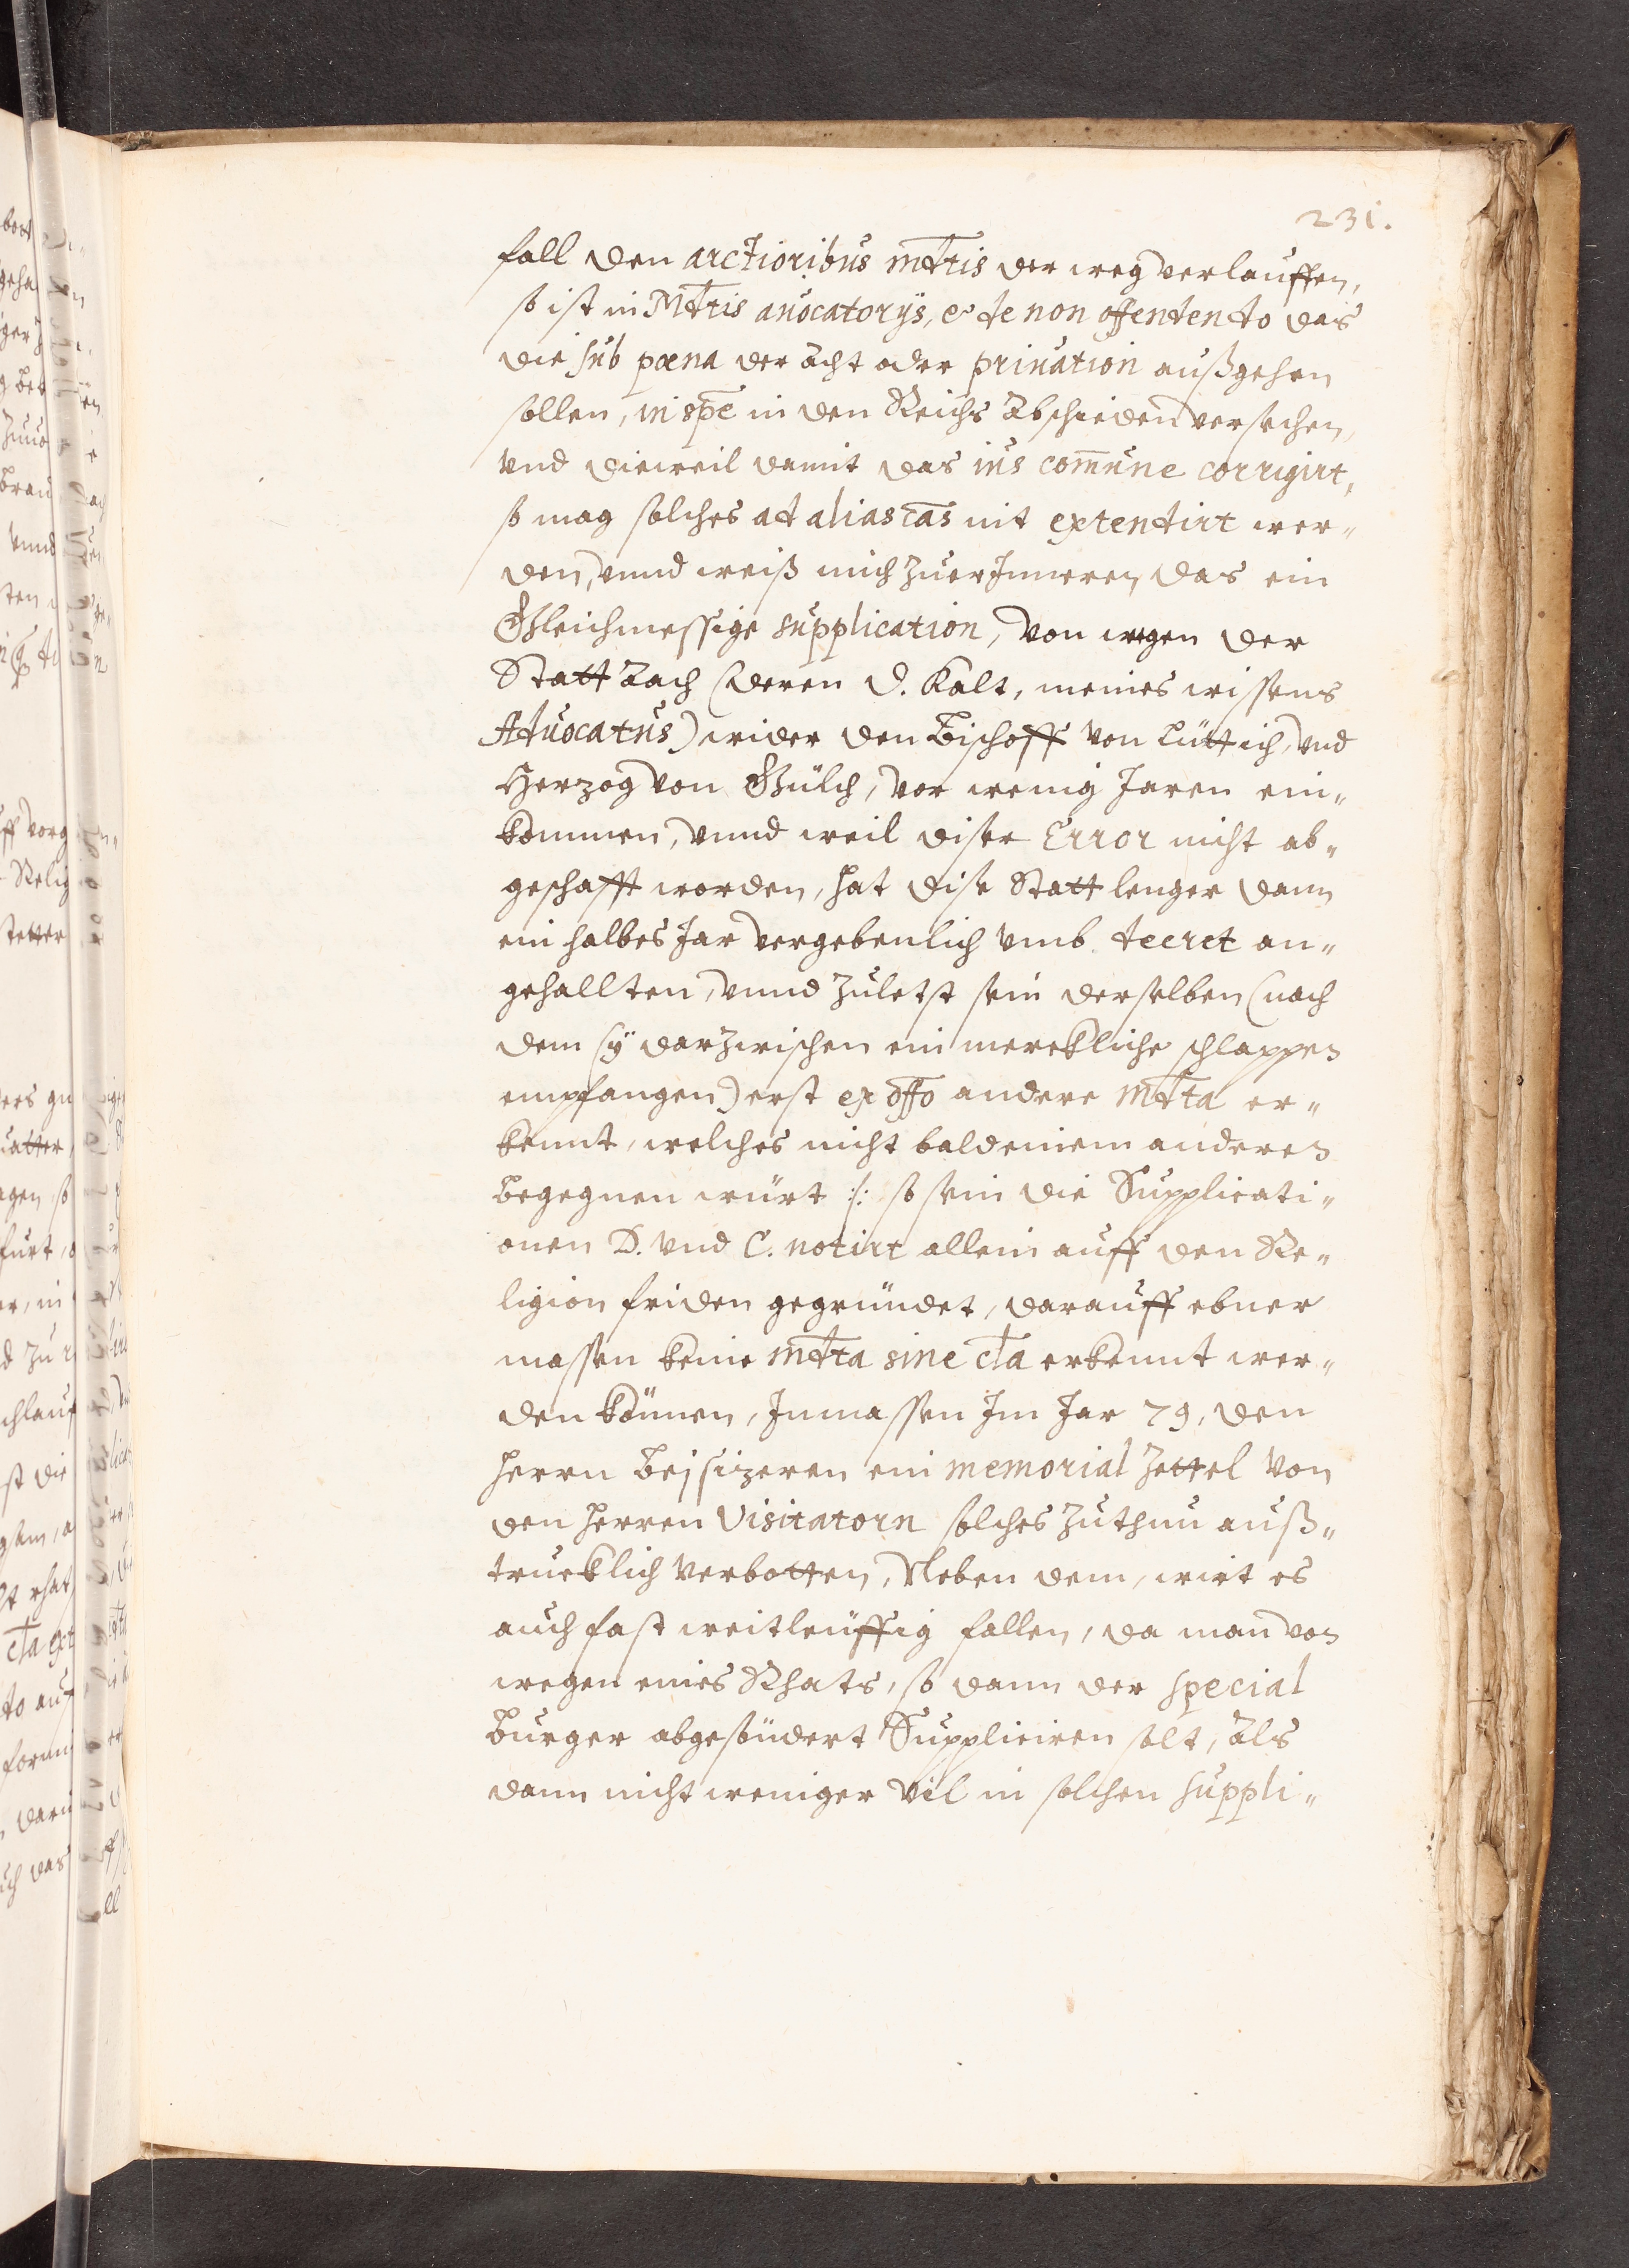 231.
fall den arctioribus mdtis der weg verlauffen,
so ist in Mdtis auocatorijs, & de non offendendo das
die sub pœna der acht oder priuation außgehen
sollen, in spē in den Reichs Abschieden versechen,
vnd dieweil damit das ius comūne corrigirt,
so mag solches ad alias cās nit extendirt wer„
den, vnnd weiß mich zuerInneren das ein
Gleichmessige supplication, von wegen der
Statt Aach (deren D. Kalt, meines wissens
Aduocatus) wider den Bischoff von Lüttich, vnd
Herzog von Gülch, vor wenig Jaren ein„
kommen, vnnd weil diser Error nicht ab„
geschafft worden, hat dise Statt lenger dann
ein halbes Jar vergebenlich vmb decret an„
gehallten, vnnd zuletst sein derselben (nach
dem sÿ darzwischen ein merckliche schlappen
empfangen) erst ex offo andere mdta er„
kennt, welches nicht bald einem anderen
begegnen würt :/: so sein die Supplicati„
onen D. vnd C. notirt allein auff den Re„
ligion friden gegründet, darauff ebner
massen keine mdta sine cla erkennt wer„
den können, Inmassen Im Jar 79, den
herrn Beisizeren ein memorial Zettel von
den herren Visitatorn solches zuthun auß„
trucklich verbotten, Neben dem, wirt es
auch fast weitleuffig fallen, da man von
wegen eines Rhats, so dann der special
Burger abgesündert Suppliciren solt, Als
dann nicht weniger vil in solchen suppli„